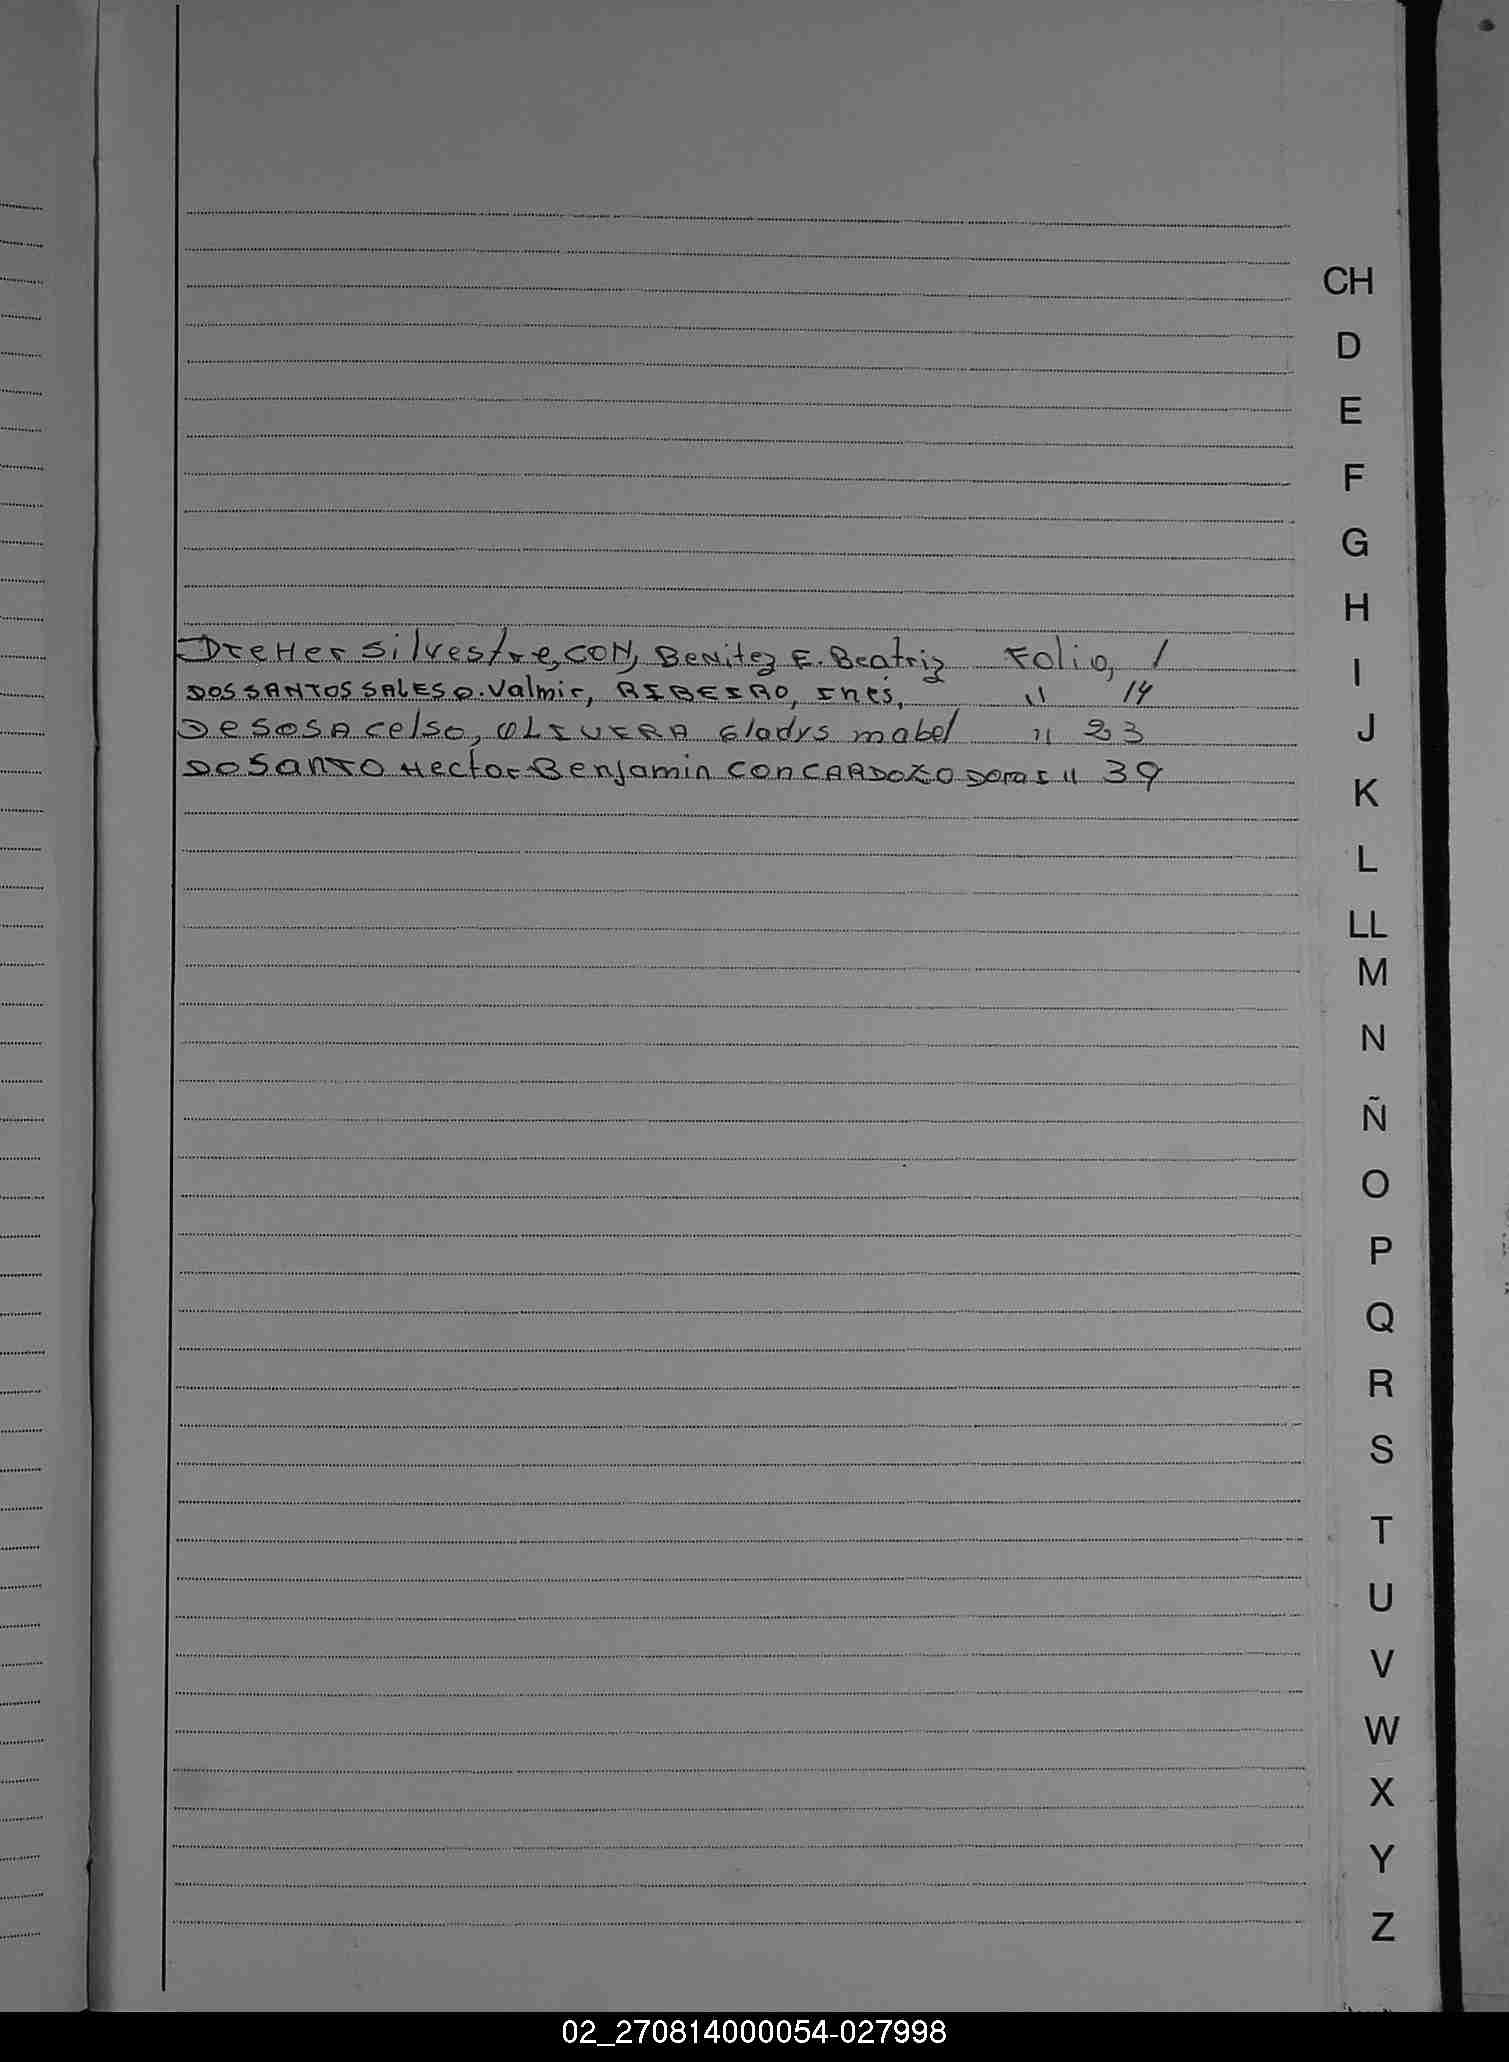 CH
D
E
F
G
H
I
J
K
L
LL
M
N
Ñ
O
P
Q
R
S
T
U
V
W
X
Y
Z
DreHer Silvestre, CON, Benitez E. Beatriz Folio, 1
DOS SANTOS SALES D. Valmir, RIBEIRO, Ines, " 14
DE SOSA Celso, OLIVERA Gladys mabel " 23
DO SANTO Hector Benjamin CON CARDOZO " 39
02_270814000054-027998